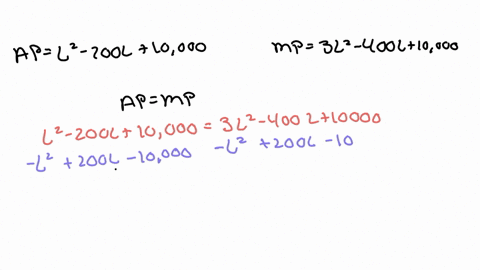 AP=L²-200L+10,000 MP=3L²-400L+10,000
AP=MP
L²-200L+10,000=3L²-400L+10000
-L²+200L-10,000 -L²+200L-10